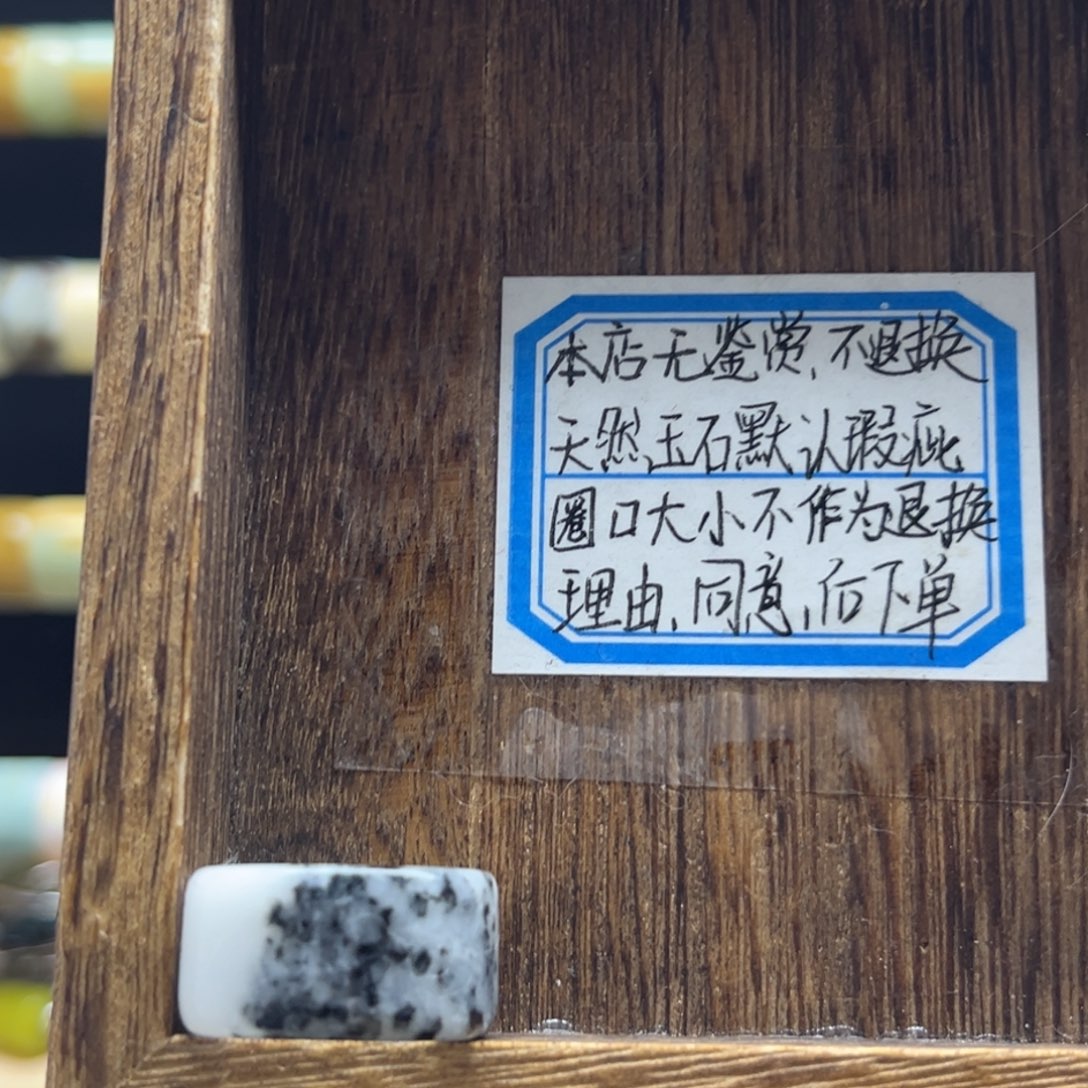 本店无鉴赏,不退换
天然玉石默认瑕疵
圈口大小不作为退换
理由,同意,后下单